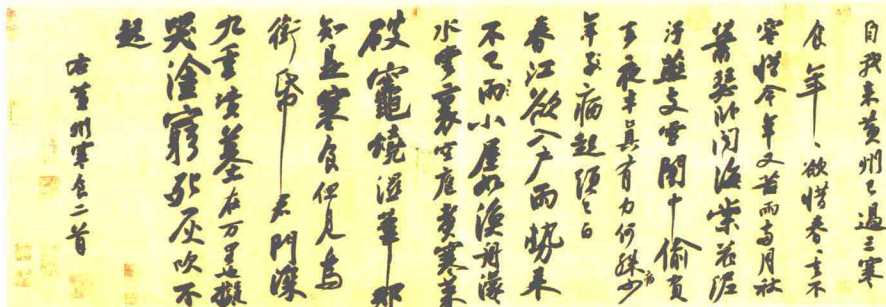 自我來黃州已過三寒
食年、欲惜春、去不
容惜今年又苦雨兩月秋
蕭瑟臥聞海棠花泥
汙燕支雪闇中偷負
去夜半真有力何殊病少
年子病起頭已白
春江欲入戶雨勢來
不已雨小屋如漁舟濛
水雲裏空庖煮寒菜
破竈燒濕葦那
知是寒食但見烏
銜帋君門深
九重墳墓在万里也擬
哭塗窮死灰吹不
起
右黃州寒食二首